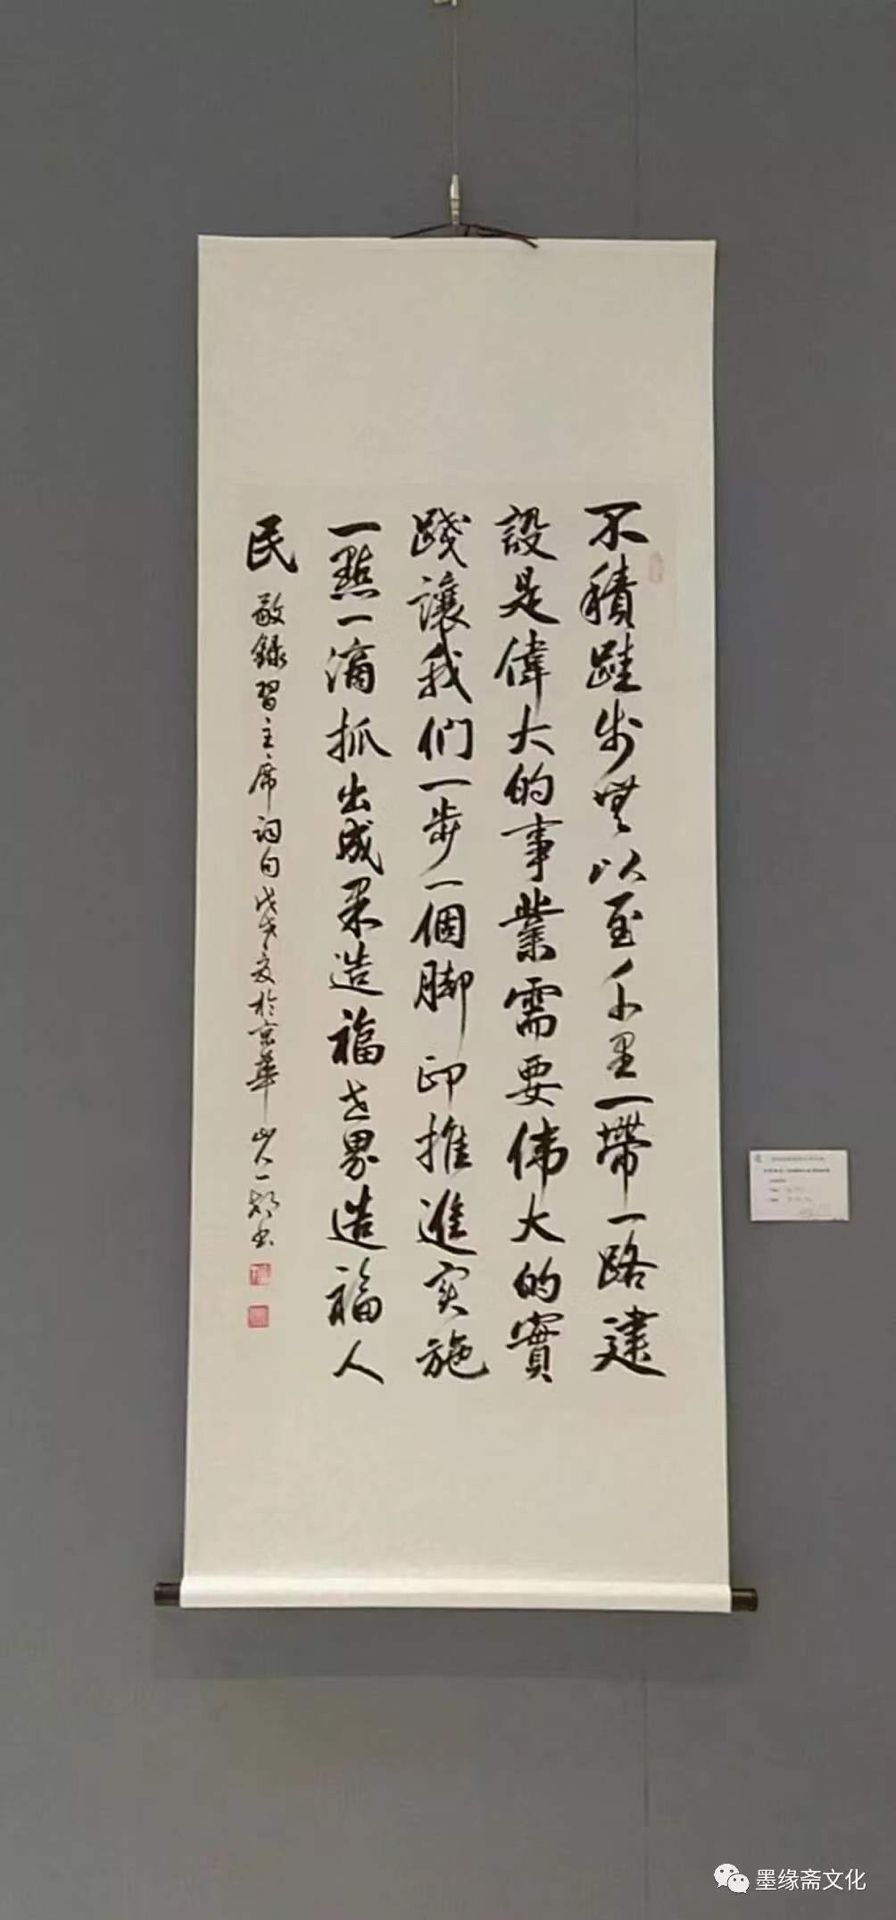 不積跬步無以至千里一帶一路建
設是偉大的事業需要偉大的實
踐讓我们一步一個脚印推進实施
一點一滴抓出成果造福世界造福人
民
敬錄習主席詞句戊戌夏於京華山人一
墨缘斋文化